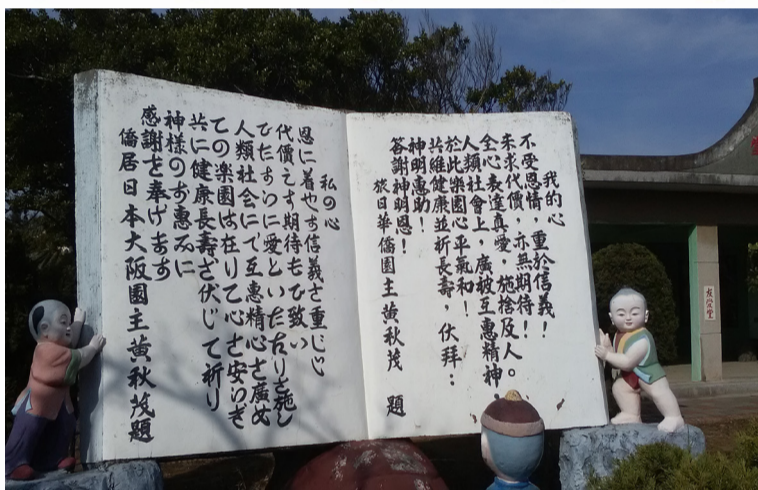 我的心
不受恩情，重於信義！
未求代價，亦無期待！
全心表達真愛，施捨及人。
人類社會上，廣被互惠精神，
於此樂園心平氣和！
共維健康並祈長壽，伏拜：
神明惠助！
答謝神明恩！
旅日華僑園主黃秋茂 題
私の心
恩に着せず信義を重じ
代價えす期待もせ致い
ひたすらに愛といたわりを施し
人類社会にて互惠精心を廣め
ての楽園は在りて心を安らぎ
共に健康長壽を伏して祈り
神様のお惠みに
感謝を奉げます
僑居日本大阪園主黄秋茂題